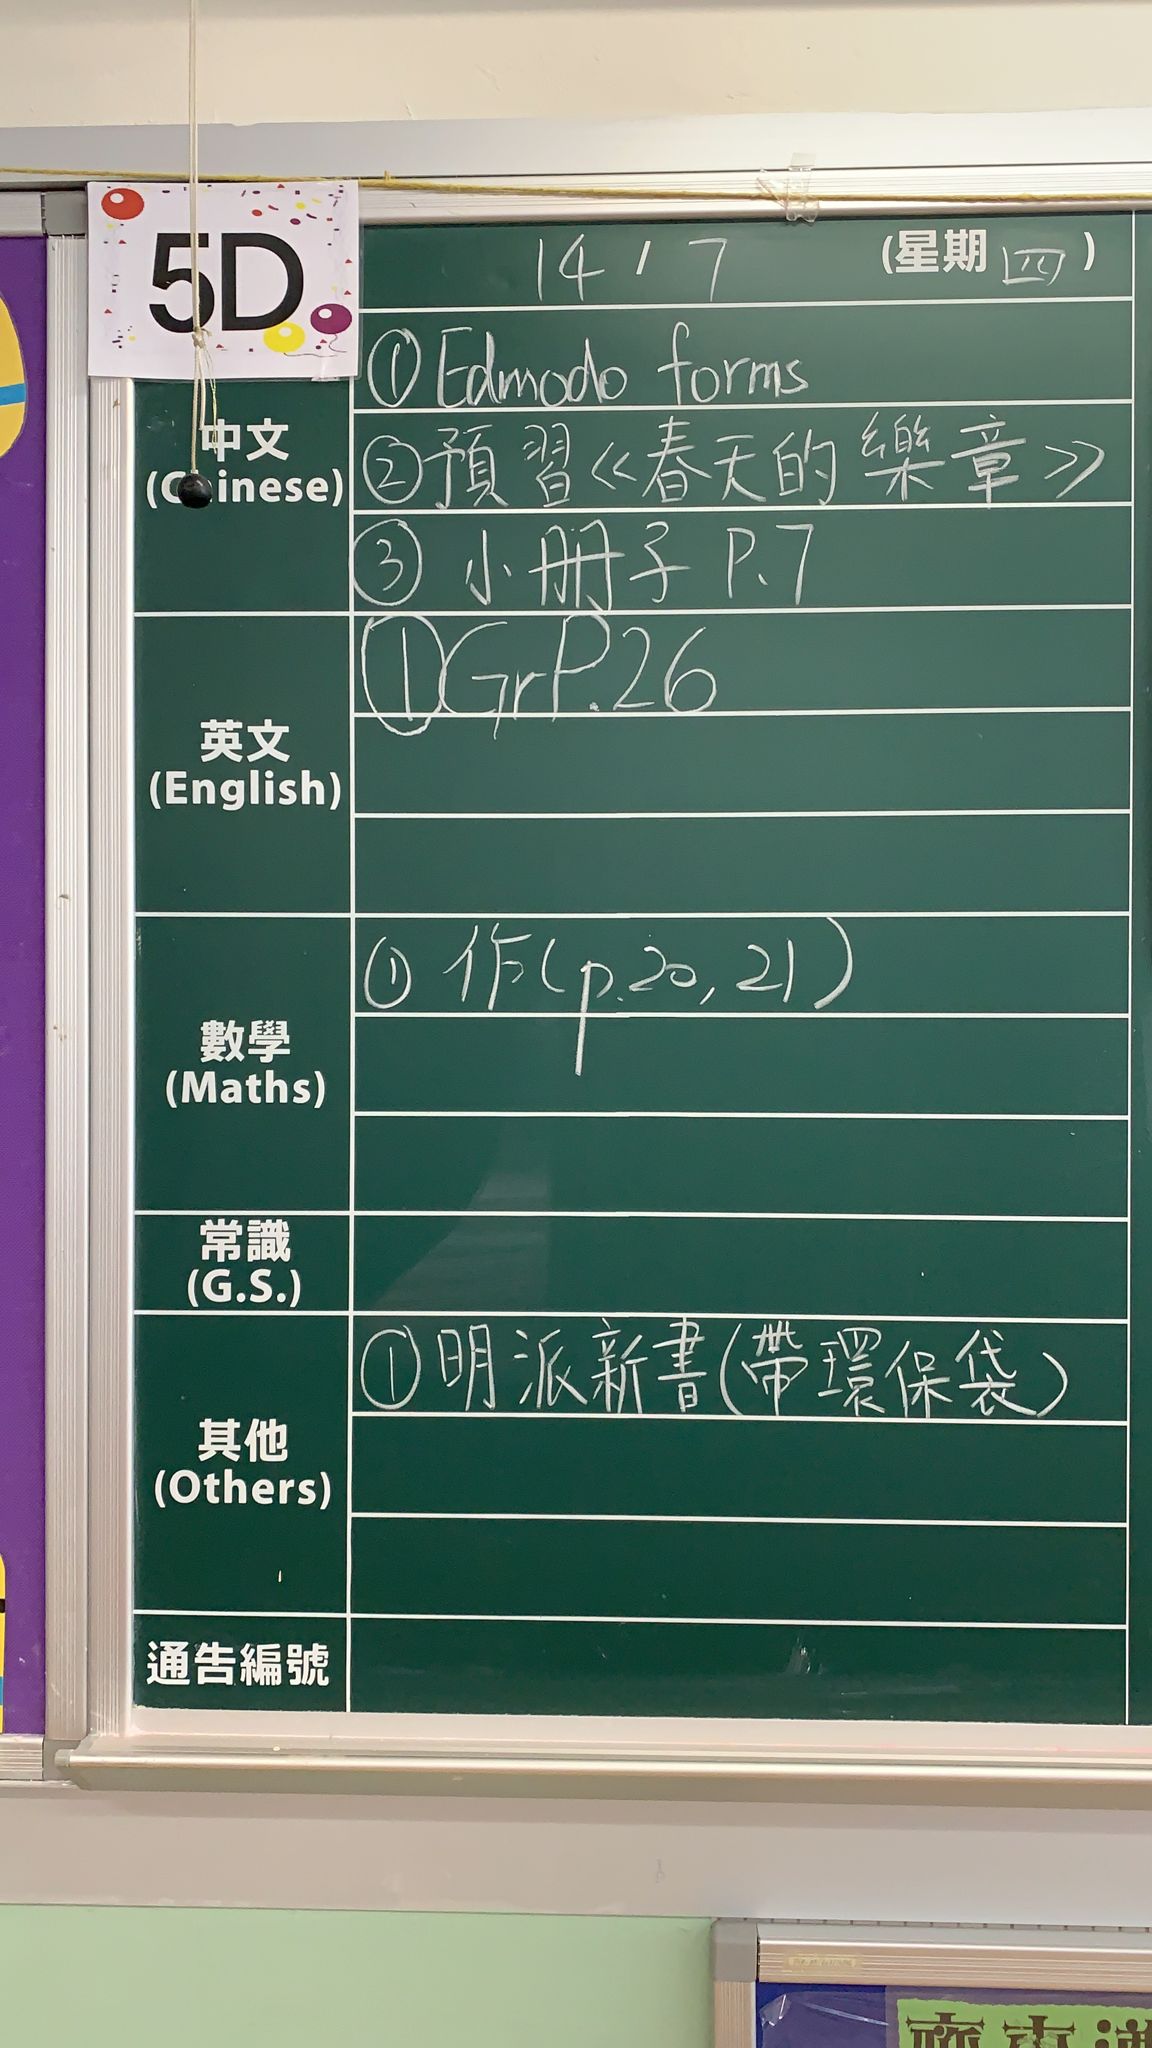 5D
14/7 (星期四)
中文
(Chinese)
①Edmodo forms
②預習《春天的樂章》
③小冊子 P.7
英文
(English)
①GrP.26
數學
(Maths)
①作(p.20,21)
常識
(G.S.)
其他
(Others)
①明派新書(帶環保袋)
通告編號